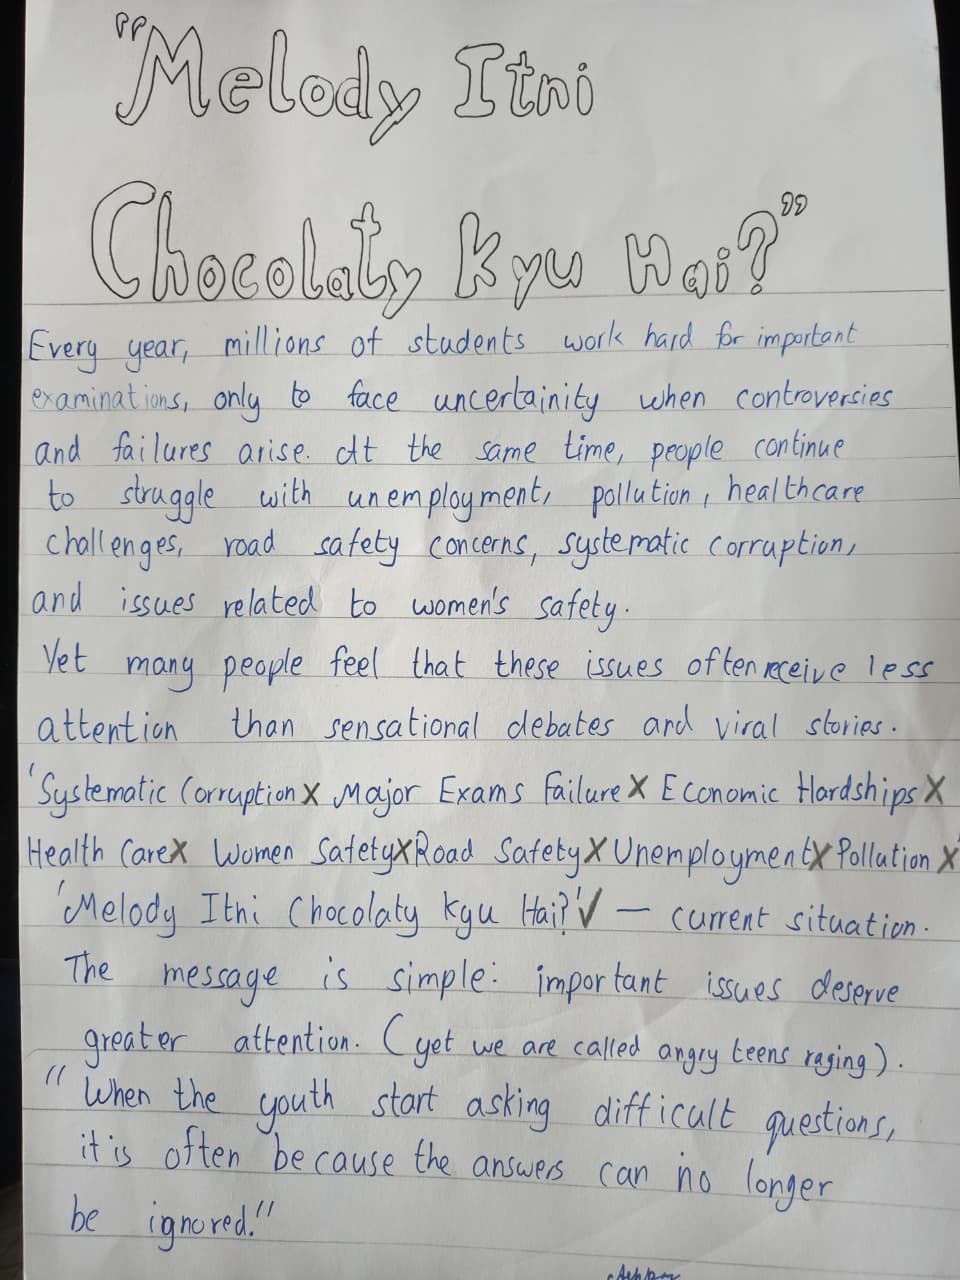 "Melody Itni
Chocolaty Kyu Hai?"
Every year, millions of students work hard for important
examinations, only to face uncertainity when controversies
and failures arise. At the same time, people continue
to struggle with unemployment, pollution, healthcare
challenges, road safety concerns, systematic corruption,
and issues related to women's safety.
Yet many people feel that these issues often receive less
attention than sensational debates and viral stories.
'Systematic Corruption X Major Exams Failure X Economic Hardships X
Health Care X Women Safety X Road Safety X Unemployment X Pollution X'
'Melody Itni Chocolaty Kyu Hai?' ✓ — current situation.
The message is simple: important issues deserve
greater attention. (yet we are called angry teens raging).
"When the youth start asking difficult questions,
it is often because the answers can no longer
be ignored."